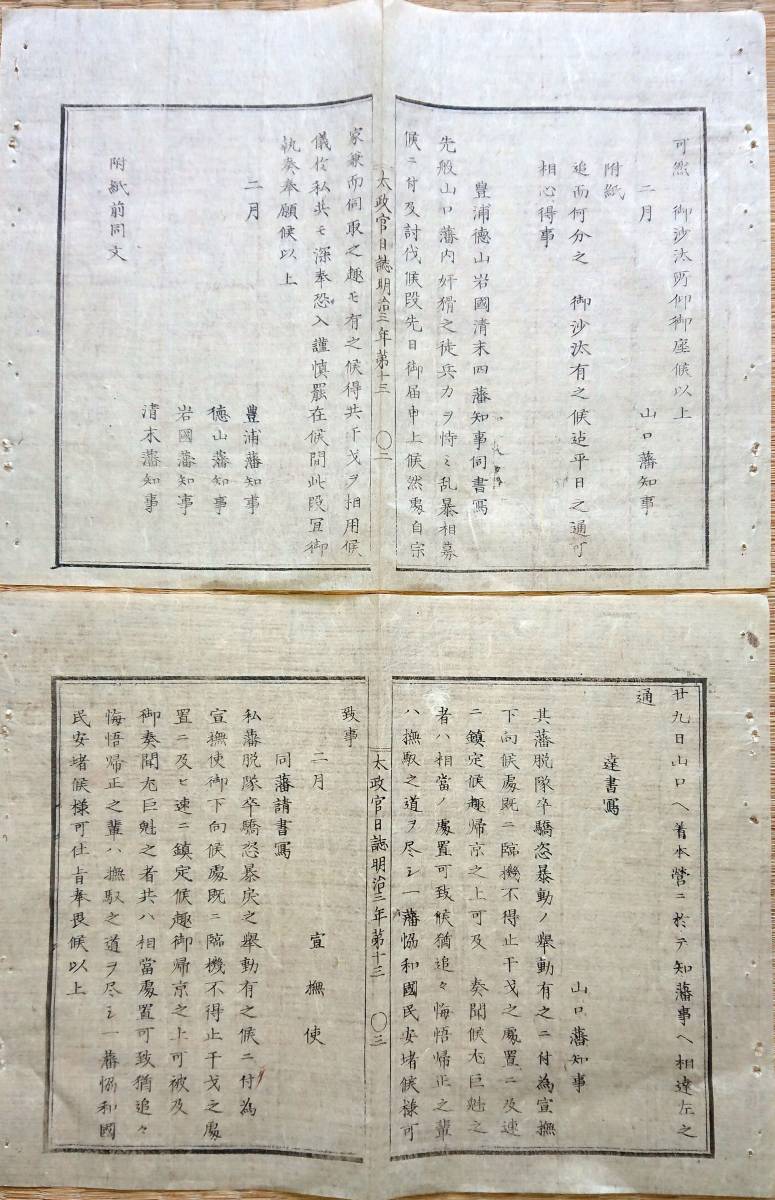 可然 御沙汰所仰御座候以上
二月 山口藩知事
附紙
追而何分之 御沙汰有之候迠平日之通可
相心得事
豊浦德山岩國清末四藩知事伺書寫
先般山口藩内奸猾之徒兵力ヲ恃ミ乱暴相募
候ニ付及討伐候段先日御届申上候然處自宗
太政官日誌明治三年第十三 〇二
家兼而伺取之趣モ有之候得共干戈ヲ相用候
儀於私共モ深奉恐入謹慎罷在候間此段宜御
執奏奉願候以上
二月
豊浦藩知事
德山藩知事
岩國藩知事
清末藩知事
附紙前同文
廿九日山口ヘ着本營ニ於テ知藩事ヘ相達左之
通
達書寫
山口藩知事
其藩脱隊卒驕恣暴動ノ舉動有之ニ付為宣撫
下向候處既ニ臨機不得止干戈之處置ニ及速
ニ鎮定候趣帰京之上可及 奏聞候尤巨魁之
者ハ相當ノ處置可致候猶追々悔悟帰正之輩
ハ撫馭之道ヲ尽シ一藩恊和國民安堵候様可
太政官日誌明治三年第十三 〇三
致事
二月 宣撫使
同藩請書寫
私藩脱隊卒驕恣暴戻之舉動有之候ニ付為
宣撫使御下向候處既ニ臨機不得止干戈之處
置ニ及ヒ速ニ鎮定候趣御帰京之上可被及
御奏聞尤巨魁之者共ハ相當處置可致猶追々
悔悟帰正之輩ハ撫馭之道ヲ尽シ一藩恊和國
民安堵候様可仕旨奉畏候以上